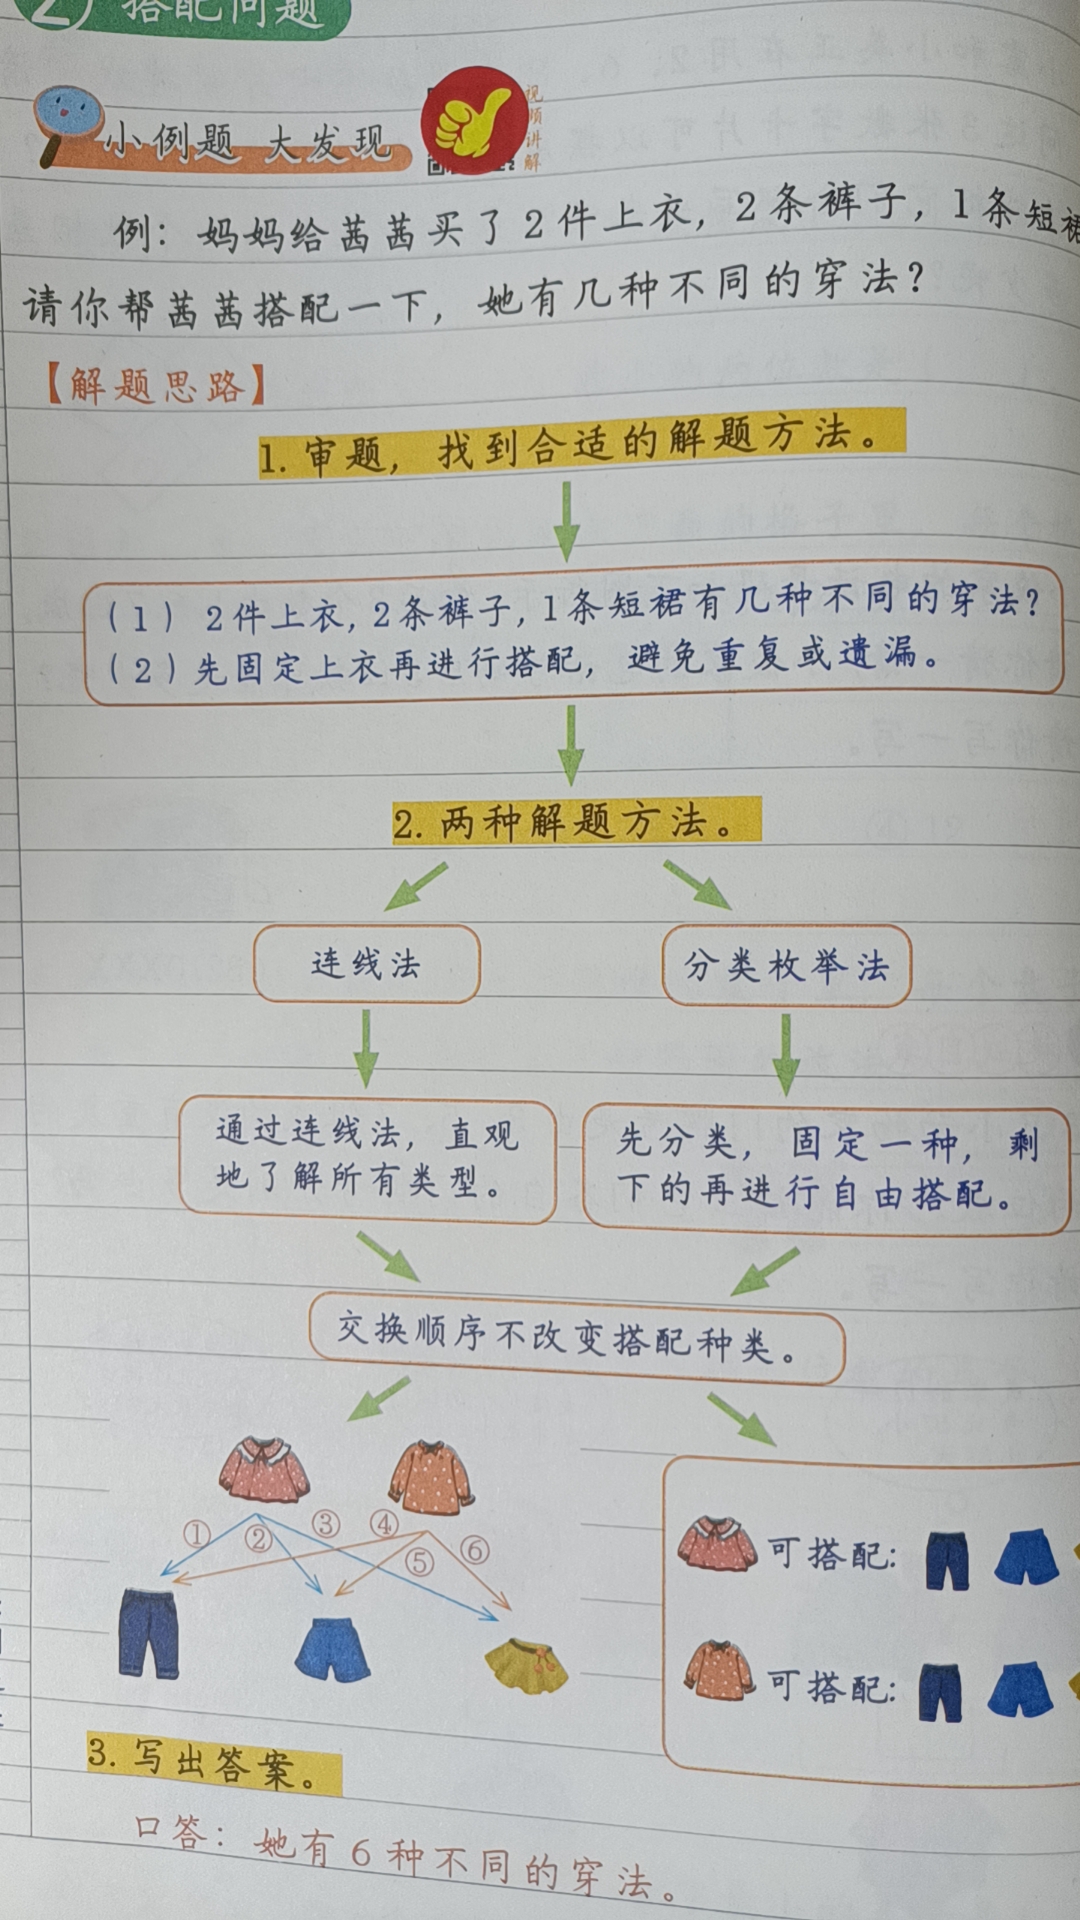 搭配问题
小例题 大发现
视频讲解
例：妈妈给茜茜买了2件上衣，2条裤子，1条短裙
请你帮茜茜搭配一下，她有几种不同的穿法？
【解题思路】
1. 审题，找到合适的解题方法。
（1）2件上衣，2条裤子，1条短裙有几种不同的穿法？
（2）先固定上衣再进行搭配，避免重复或遗漏。
2. 两种解题方法。
连线法
分类枚举法
通过连线法，直观
地了解所有类型。
先分类，固定一种，剩
下的再进行自由搭配。
交换顺序不改变搭配种类。
① ② ③ ④ ⑤ ⑥
可搭配：
可搭配：
3. 写出答案。
口答：她有6种不同的穿法。